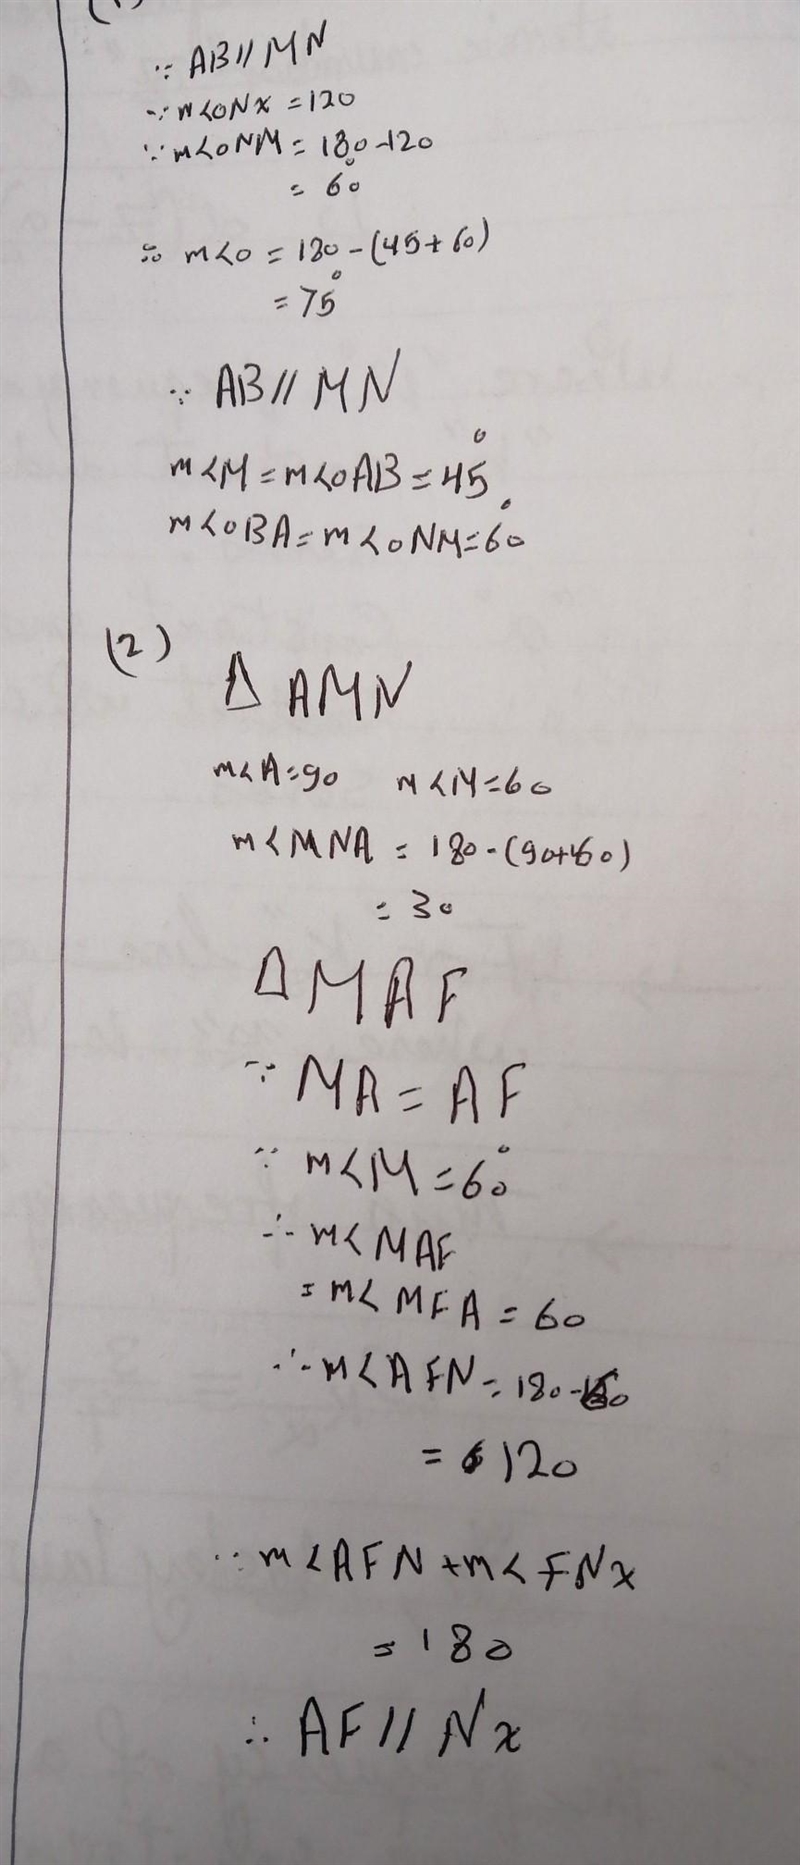 (1)
∵ AB // MN
∵ m<ONX = 120
∵ m<ONM = 180 - 120
= 60°
∴ m<O = 180 - (45 + 60)
= 75°
∵ AB // MN
m<M = m<OAB = 45°
m<OBA = m<ONM = 60°
(2)
Δ AMN
m<A = 90 m<M = 60
m<MNA = 180 - (90+60)
= 30
Δ MAF
∵ MA = AF
∵ m<M = 60°
∴ m<MAF
= m<MFA = 60
∴ m<AFN = 180 - 60
= 120
∵ m<AFN + m<FNx
= 180
∴ AF // Nx